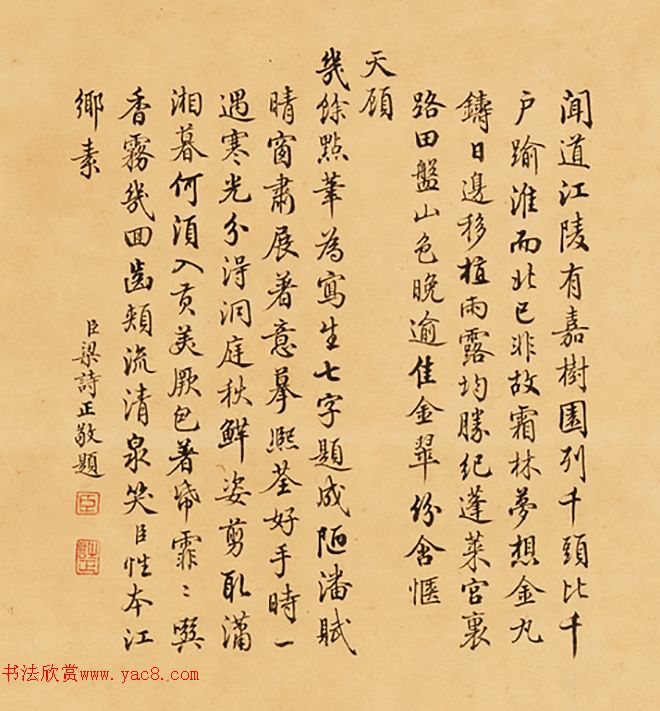 闻道江陵有嘉樹園列千頭比千
户踰淮而北已非故霜林夢想金丸
鑄日邊移植雨露均勝紀蓬萊宮裏
路田盤山色晚逾佳金翠份舍惬
天顾
幾餘點筆為寫生七字題成陋潘賦
晴窗肅展著意摹熙荃好手時一
遇寒光分浔洞庭秋鮮姿剪取瀟
湘暮何須入貢美厥包著帋霏〻噀
香霧幾回齒頰流清泉笑臣性本江
鄉素
臣梁詩正敬題
臣
詩正
书法欣赏www.yac8.com